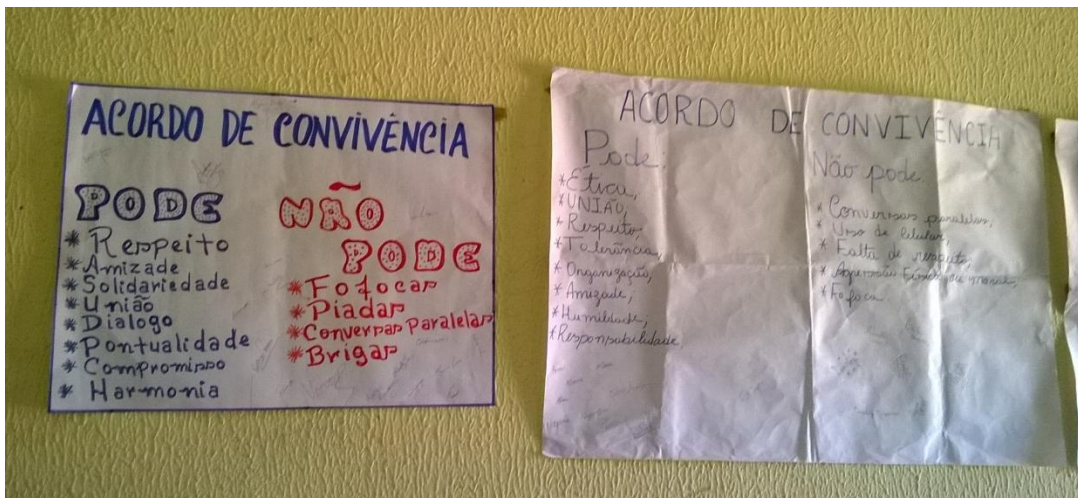 ACORDO DE CONVIVÊNCIA
PODE
* Respeito
* Amizade
* Solidariedade
* União
* Dialogo
* Pontualidade
* Compromisso
* Harmonia
NÃO
PODE
* Fofocas
* Piadas
* Conversas Paralelas
* Brigas
ACORDO DE CONVIVÊNCIA
Pode
* Ética,
* UNIÃO,
* Respeito,
* Tolerância,
* Organização,
* Amizade,
* Humildade,
* Responsabilidade.
Não pode
* Conversas paralelas,
* Uso de celular,
* Falta de respeito,
* Agressão física ou moral,
* Fofoca